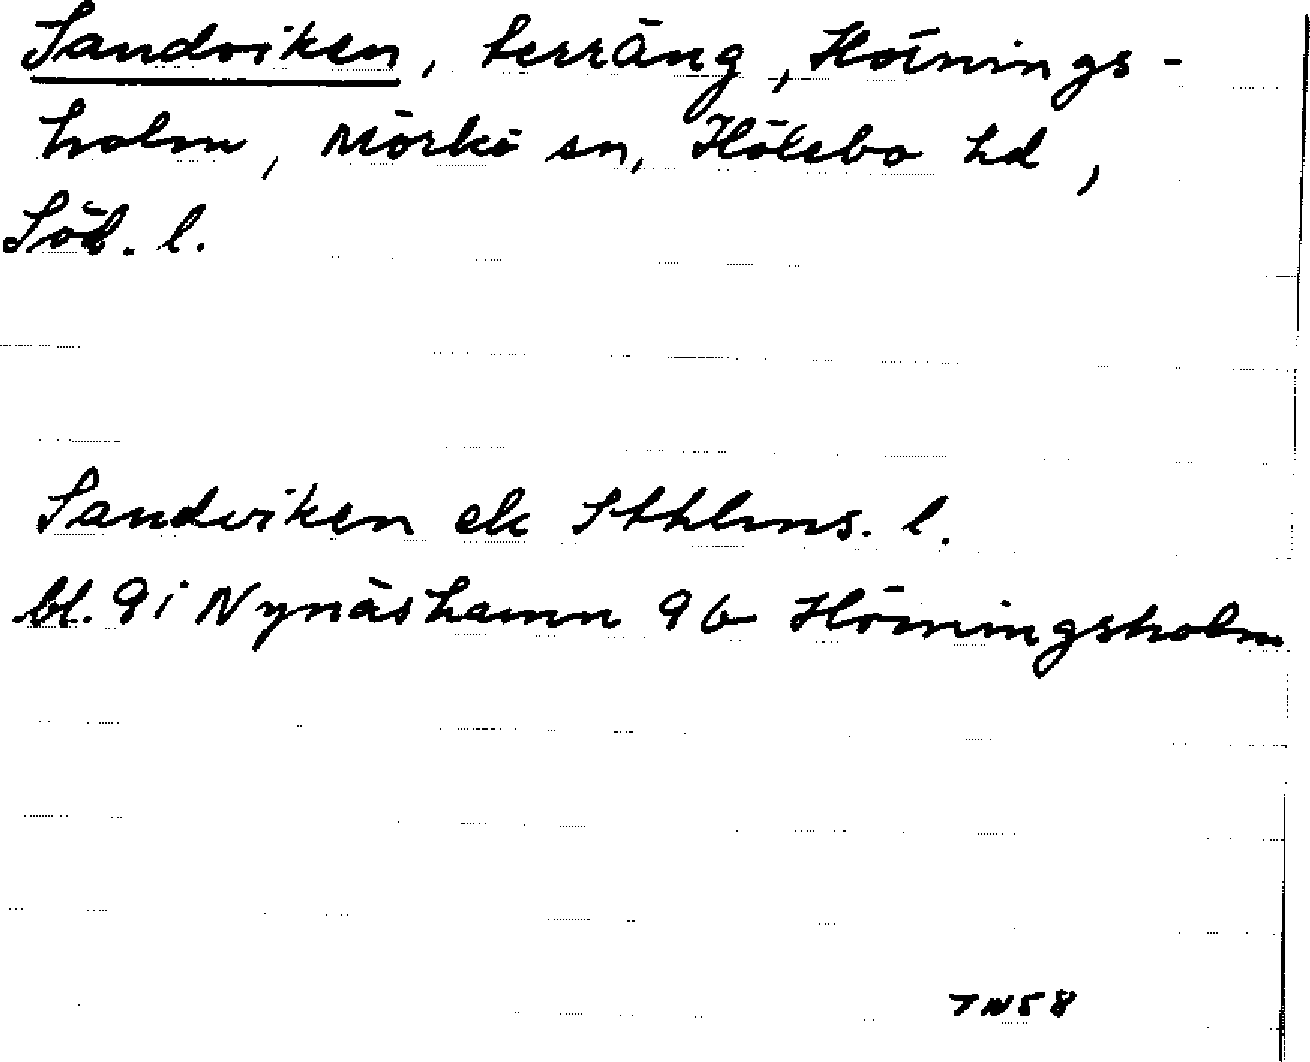 Sandviken, terräng, Hörnings-
holm, Mörkö sn, Hölebo hd,
Söd. l.
Sandviken ek Sthlms. l.
bl. 9i Nynäshamn 9b Hörningsholm
TN58